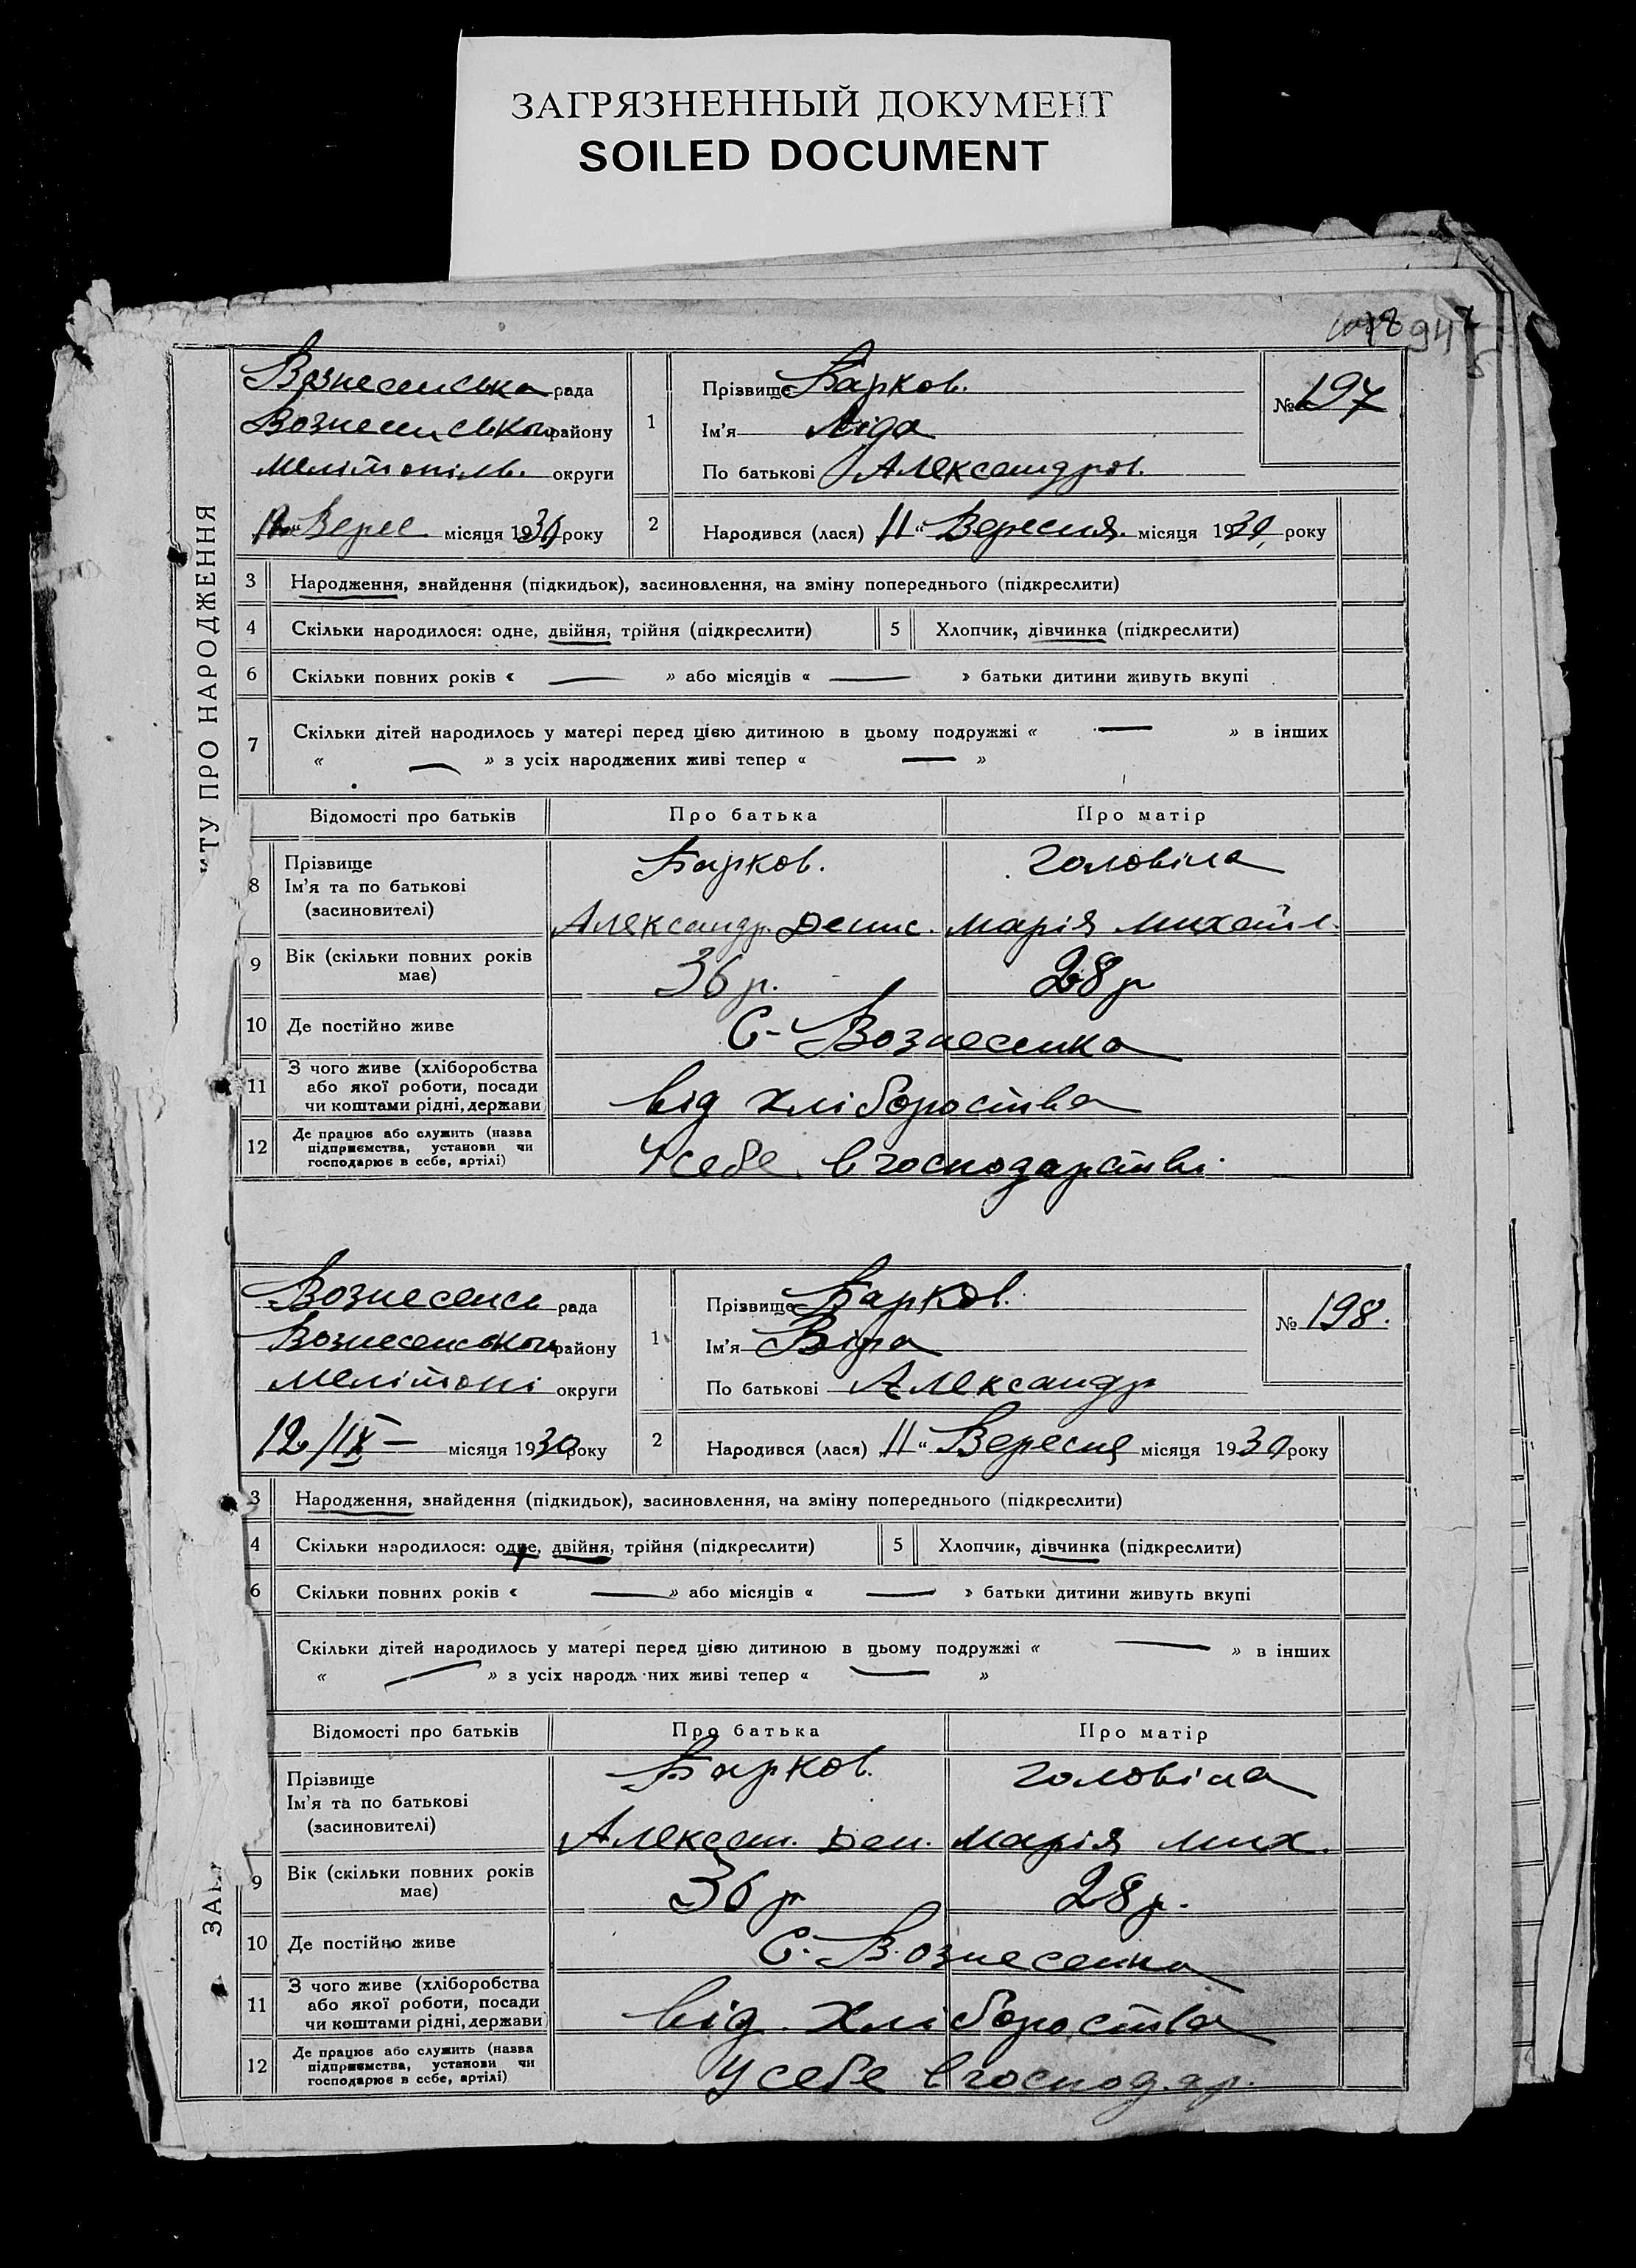 ЗАГРЯЗНЕННЫЙ ДОКУМЕНТ
SOILED DOCUMENT
ПРО НАРОДЖЕННЯ
Вознесенська рада
Вознесенсько району
Мелітопіль. округи
12 Верес місяця 1930 року
1
Прізвище Барков.
Ім'я Ліда
По батькові Александров.
№ 197
2
Народився (лася) 11 " Вересня місяця 1930 року
3 Народження, знайдення (підкидьок), засиновлення, на зміну попереднього (підкреслити)
4 Скільки народилося: одне, двійня, трійня (підкреслити) 5 Хлопчик, дівчинка (підкреслити)
6 Скільки повних років « — » або місяців « — » батьки дитини живуть вкупі
7 Скільки дітей народилось у матері перед цією дитиною в цьому подружжі « — » в інших
« — » з усіх народжених живі тепер « — »
Відомості про батьків Про батька Про матір
8 Прізвище
Ім'я та по батькові
(засиновителі)
Барков. Головіна
Александр. Денис. Марія Михайл.
9 Вік (скільки повних років
має) 36 р. 28 р
10 Де постійно живе С- Вознесенка
11 З чого живе (хліборобства
або якої роботи, посади
чи коштами рідні, держави
від хлібороства
12 Де працює або служить (назва
підприємства, установи чи
господарює в себе, артілі)
У себе в господарстві.
Вознесенсь рада
Вознесенсько району
Мелітопі округи
12/IX — місяця 1930 року
1
Прізвище Барков.
Ім'я Віра
По батькові Александр
№ 198.
2
Народився (лася) „11 " Вересня місяця 1930 року
3 Народження, знайдення (підкидьок), засиновлення, на зміну попереднього (підкреслити)
4 Скільки народилося: одне, двійня, трійня (підкреслити) 5 Хлопчик, дівчинка (підкреслити)
6 Скільки повних років « — » або місяців « — » батьки дитини живуть вкупі
Скільки дітей народилось у матері перед цією дитиною в цьому подружжі « — » в інших
« — » з усіх народж них живі тепер « — »
Відомості про батьків Про батька Про матір
Прізвище
Ім'я та по батькові
(засиновителі)
Барков. Головіна
Алексан. Ден. Марія Мих.
9 Вік (скільки повних років
має) 36 р 28 р.
10 Де постійно живе С. Вознесенка
11 З чого живе (хліборобства
або якої роботи, посади
чи коштами рідні, держави
від хлібороства
12 Де працює або служить (назва
підприємства, установи чи
господарює в себе, артілі)
У себе в господар.